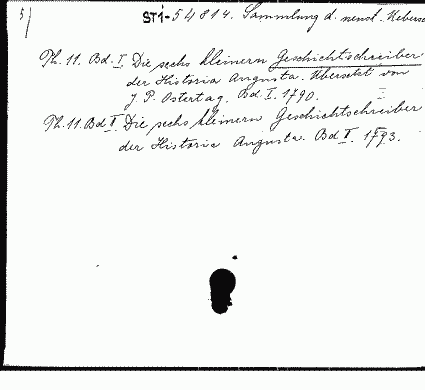 5/
ST1-54814. Sammlung d. neust. Uebers
Th. 11. Bd. I. Die sechs kleinern Geschichtschreiber
der Historia Augusta. Übersetzt von
J. P. Ostertag. Bd. I. 1790.
Th. 11. Bd II. Die sechs kleinern Geschichtschreiber
der Historia Augusta. Bd II. 1793.